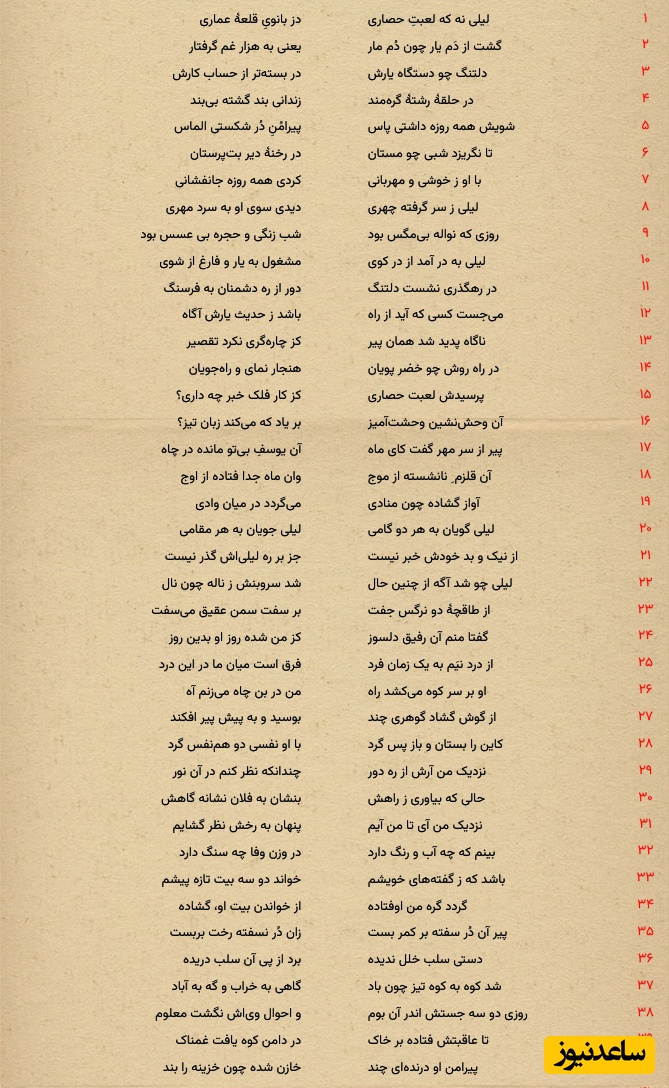 ۱ لیلی نه که لعبتِ حصاری دز بانویِ قلعهٔ عماری
۲ گشت از دَم یار چون دُم مار یعنی به هزار غم گرفتار
۳ دلتنگ چو دستگاه یارش در بسته‌تر از حساب کارش
۴ در حلقهٔ رشتهٔ گره‌مند زندانی بند گشته بی‌بند
۵ شویش همه روزه داشتی پاس پیرامُنِ دُر شکستی الماس
۶ تا نگریزد شبی چو مستان در رخنهٔ دیر بت‌پرستان
۷ با او ز خوشی و مهربانی کردی همه روزه جانفشانی
۸ لیلی ز سر گرفته چهری دیدی سوی او به سرد مهری
۹ روزی که نواله بی‌مگس بود شب زنگی و حجره بی عسس بود
۱۰ لیلی به در آمد از در کوی مشغول به یار و فارغ از شوی
۱۱ در رهگذری نشست دلتنگ دور از ره دشمنان به فرسنگ
۱۲ می‌جست کسی که آید از راه باشد ز حدیث یارش آگاه
۱۳ ناگاه پدید شد همان پیر کز چاره‌گری نکرد تقصیر
۱۴ در راه روش چو خضر پویان هنجار نمای و راه‌جویان
۱۵ پرسیدش لعبت حصاری کز کار فلک خبر چه داری؟
۱۶ آن وحش‌نشین وحشت‌آمیز بر یاد که می‌کند زبان تیز؟
۱۷ پیر از سر مهر گفت کای ماه آن یوسف بی‌تو مانده در چاه
۱۸ آن قلزمِ نانشسته از موج وان ماه جدا فتاده از اوج
۱۹ آواز گشاده چون منادی می‌گردد در میان وادی
۲۰ لیلی گویان به هر دو گامی لیلی جویان به هر مقامی
۲۱ از نیک و بد خودش خبر نیست جز بر ره لیلی‌اش گذر نیست
۲۲ لیلی چو شد آگه از چنین حال شد سروبنش ز ناله چون نال
۲۳ از طاقچهٔ دو نرگس جفت بر سفت سمن عقیق می‌سفت
۲۴ گفتا منم آن رفیق دلسوز کز من شده روز او بدین روز
۲۵ از درد نیَم به یک زمان فرد فرق است میان ما در این درد
۲۶ او بر سر کوه می‌کشد راه من در بن چاه می‌زنم آه
۲۷ از گوش گشاد گوهری چند بوسید و به پیش پیر افکند
۲۸ کاین را بستان و باز پس گرد با او نفسی دو هم‌نفس گرد
۲۹ نزدیک من آرش از ره دور چندانکه نظر کنم در آن نور
۳۰ حالی که بیاوری ز راهش بنشان به فلان نشانه گاهش
۳۱ نزدیک من آی تا من آیم پنهان به رخش نظر گشایم
۳۲ بینم که چه آب و رنگ دارد در وزن وفا چه سنگ دارد
۳۳ باشد که ز گفته‌های خویشم خواند دو سه بیت تازه پیشم
۳۴ گردد گره من اوفتاده از خواندن بیت او، گشاده
۳۵ پیر آن دُر سفته بر کمر بست زان دُر نسفته رخت بربست
۳۶ دستی سلب خلل ندیده برد از پی آن سلب دریده
۳۷ شد کوه به کوه تیز چون باد گاهی به خراب و گه به آباد
۳۸ روزی دو سه جستش اندر آن بوم و احوال وی‌اش نگشت معلوم
تا عاقبتش فتاده بر خاک در دامن کوه یافت غمناک
پیرامن او درنده‌ای چند خازن شده چون خزینه را بند
ساعدنیوز